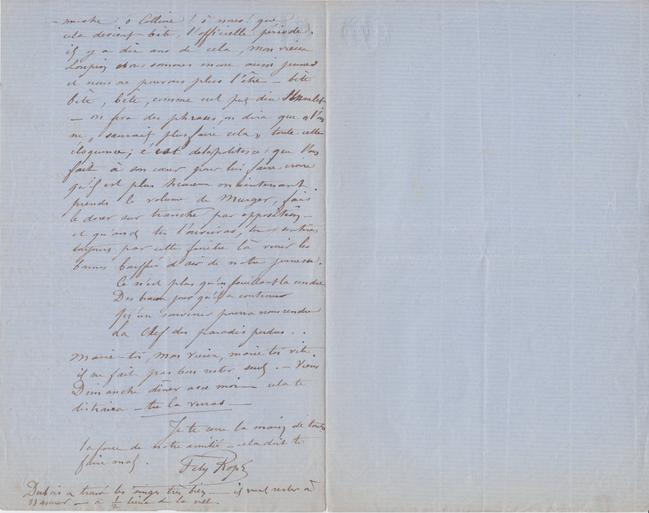 ô Colline! ô muses! que
cela devient bête, l'officielle période,
il y a dix ans de cela, mon vieux
nous sommes aussi jeunes
et nous ne pouvons plus l'être – bête
bête, bête, comme eut pu dire
– on fera des phrases, on dira que "l'on
ne saurait plus faire cela" toute cette
éloquence; c'est de la politesse que l'on
fait à son cœur pour lui faire croire
qu'il est plus heureux maintenant.
prends le volume de Murger, fais
le dorer sur tranche par opposition –
et quand tu l'ouvriras, tu sentiras
toujours par cette fenêtre là venir les
bonnes bouffées d'air de notre jeunesse.
Ce n'est plus qu'en fouillant la cendre
Des beaux jours qu'il a contenus
Qu'un souvenir pourra nous rendre
La Clef des paradis perdus . .
Marie-toi, mon vieux, marie toi vite.
il ne fait pas bon rester seul. – Viens
Dimanche dîner avec moi – cela te
distraira – tu la verras –
Je te serre la main de toute
la force de notre amitié – cela doit te
faire mal. Fély Rops
Dubois a trouvé les singes très bien – il veut rester à
– à ½ lieue de la ville.